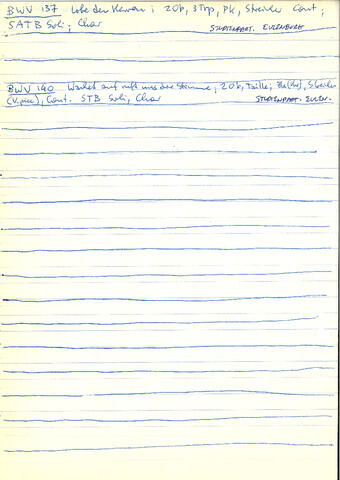 BWV 137 Lobe den Herren; 2 Ob, 3 Trp, Pk, Streicher Cont;
SATB Soli, Chor STUDIENPART. EULENBURG
BWV 140 Wachet auf ruft uns die Stimme; 2 Ob, Taille; Streicher
(V.picc), Cont. STB Soli, Chor STUDIENPART. EULEN.